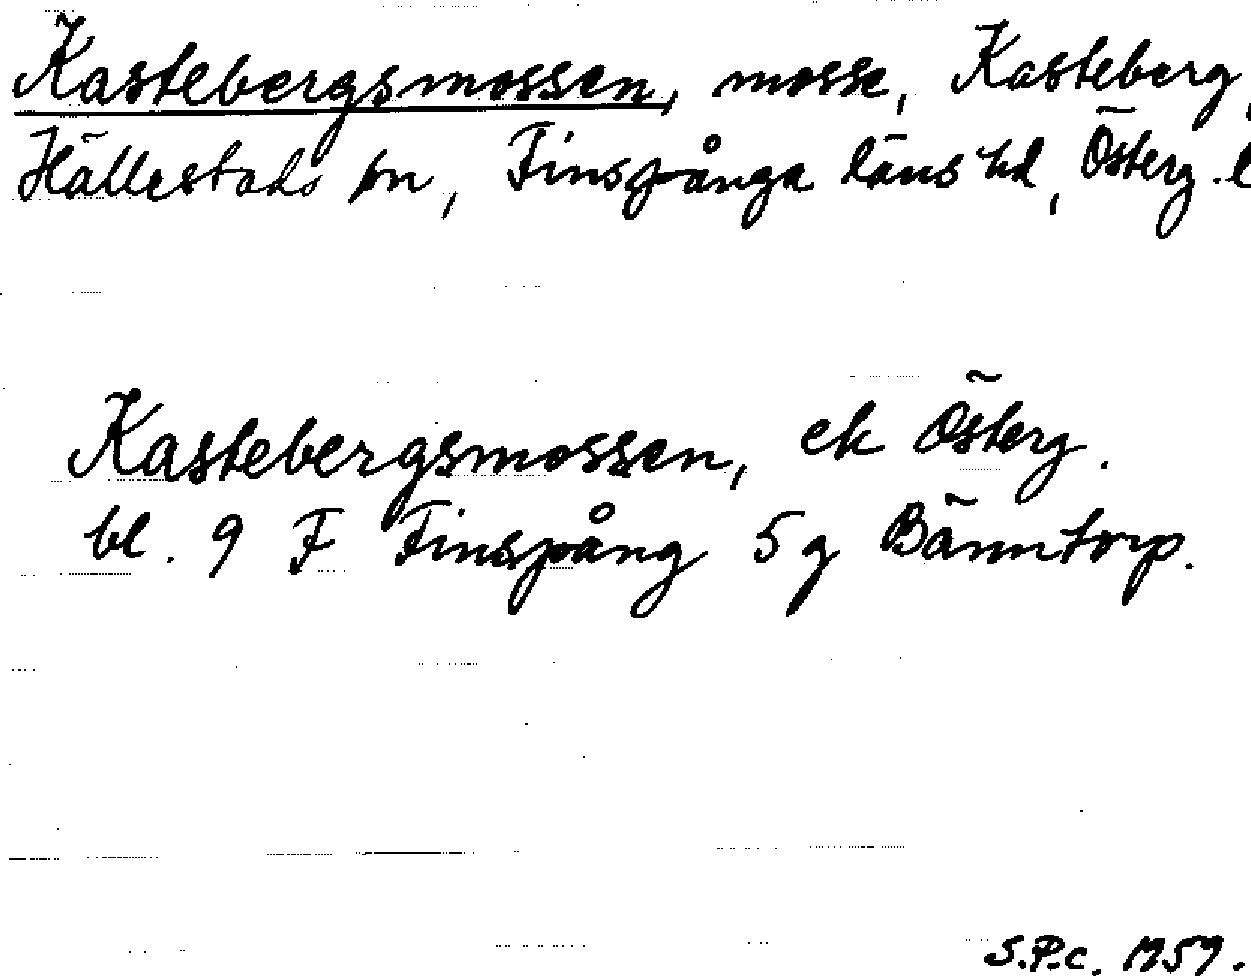 Kastebergsmossen, mosse, Kasteberg,
Hällestads sn, Finspånga läns hd, Österg. l
Kastebergsmossen, ek Österg.
bl. 9 F Finspång 5 g Bänntorp.
S.P.c. 1959.